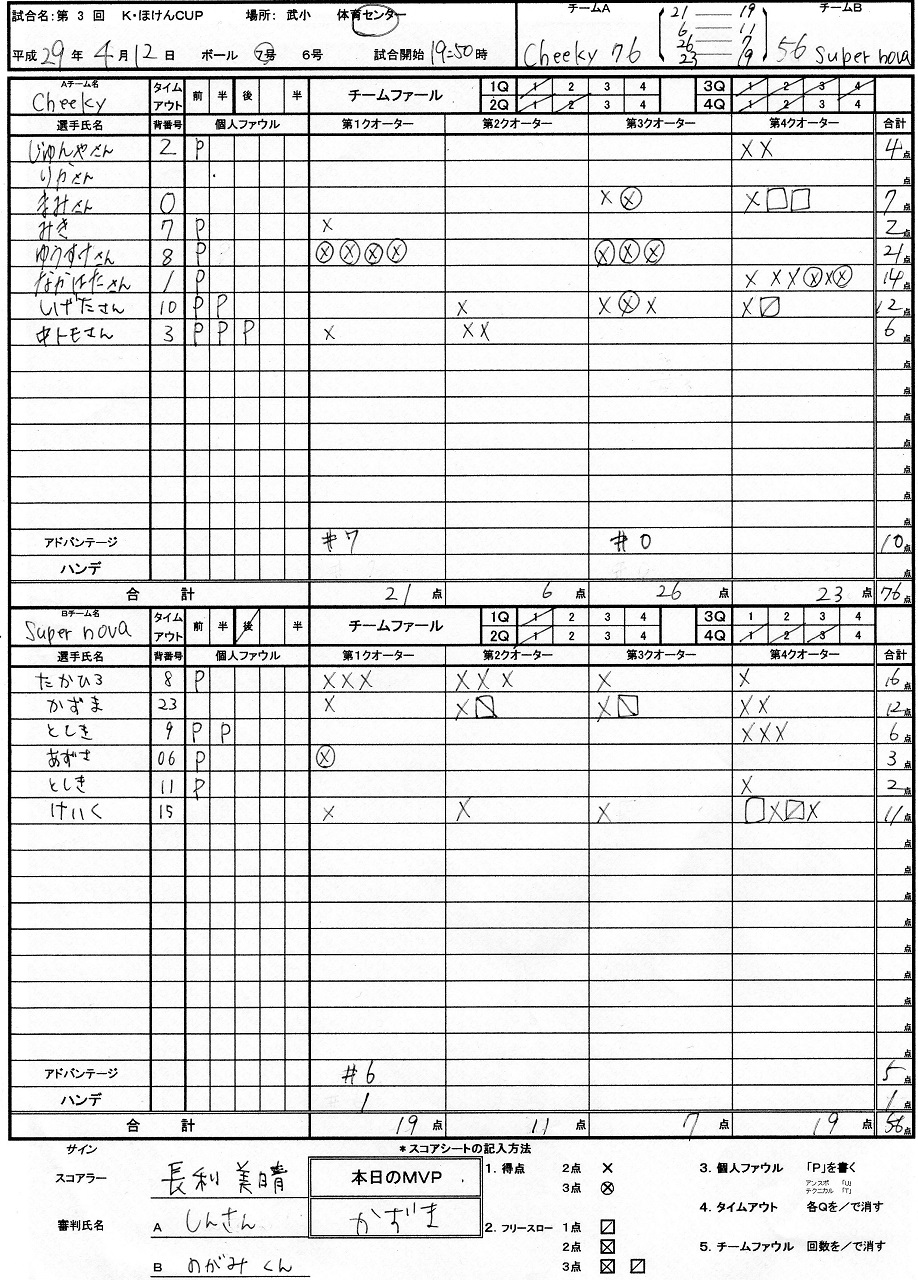 試合名:第 3 回 K・ほけんCUP 場所: 武小 体育センター
平成 29 年 4 月 12 日 ボール 7号 6号 試合開始 19:50 時
チームA チームB
Cheeky 76 56 Super nova
21 — 19
6 — 11
26 — 7
23 — 19
Aチーム名 タイム 前 半 後 半 チームファール 1Q 1 2 3 4 3Q 1 2 3 4
Cheeky アウト 2Q 1 2 3 4 4Q 1 2 3 4
選手氏名 背番号 個人ファウル 第1クオーター 第2クオーター 第3クオーター 第4クオーター 合計
じゅんやさん 2 P X X 4点
りかさん 点
まみさん 0 X ⊗ X □ □ 7点
みき 7 P X 2点
ゆうすけさん 8 P ⊗ ⊗ ⊗ ⊗ ⊗ ⊗ ⊗ 21点
なかはたさん 1 P X X X ⊗ X ⊗ 14点
しげたさん 10 P P X X ⊗ X X ⧄ 12点
中トモさん 3 P P P X X X 6点
アドバンテージ #7 #0 10点
ハンデ 点
合 計 21 点 6 点 26 点 23 点 76点
Bチーム名 タイム 前 半 後 半 チームファール 1Q 1 2 3 4 3Q 1 2 3 4
Super nova アウト 2Q 1 2 3 4 4Q 1 2 3 4
選手氏名 背番号 個人ファウル 第1クオーター 第2クオーター 第3クオーター 第4クオーター 合計
たかひろ 8 P X X X X X X X X 16点
かずま 23 X X ⧅ X ⧅ X X 12点
としき 9 P P X X X 6点
あずさ 06 P ⊗ 3点
としき 11 P X 2点
けいく 15 X X X □ X ⧄ X 11点
アドバンテージ #6 5点
ハンデ 1 1点
合 計 19 点 11 点 7 点 19 点 56点
サイン *スコアシートの記入方法
スコアラー 長利 美晴
本日のMVP
かずま
審判氏名 A しんさん
B のがみくん
1. 得点 2点 ×
3点 ⊗
2. フリースロー 1点 ⧄
2点 ⊠
3点 ⊠ ⧄
3. 個人ファウル 「P」を書く
アンスポ 「U」
テクニカル 「T」
4. タイムアウト 各Qを/で消す
5. チームファウル 回数を/で消す